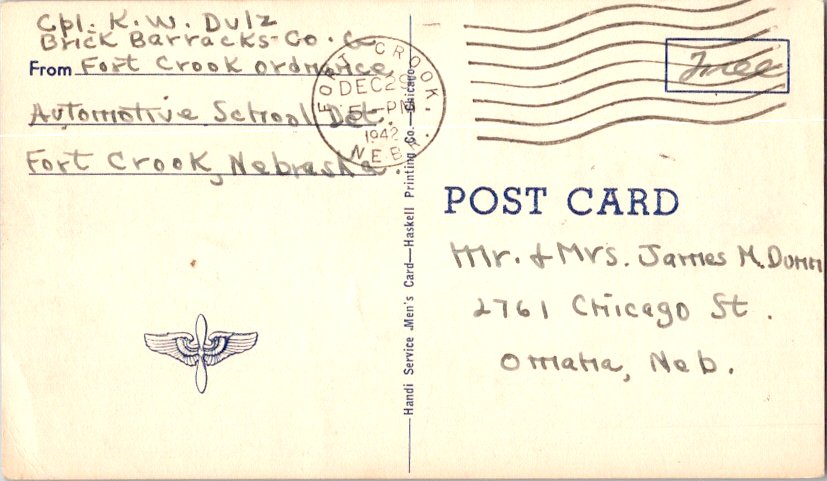 Cpl. K. W. Dulz
Brick Barracks-Co. G
From Fort Crook Ordnance
Automotive School Det.
Fort Crook, Nebraska.
FORT CROOK,
DEC 29
5 - PM
1942
NEBR.
Handi Service Men's Card—Haskell Printing Co.—Chicago
Free
POST CARD
Mr. & Mrs. James M. Dunn
2761 Chicago St.
Omaha, Neb.